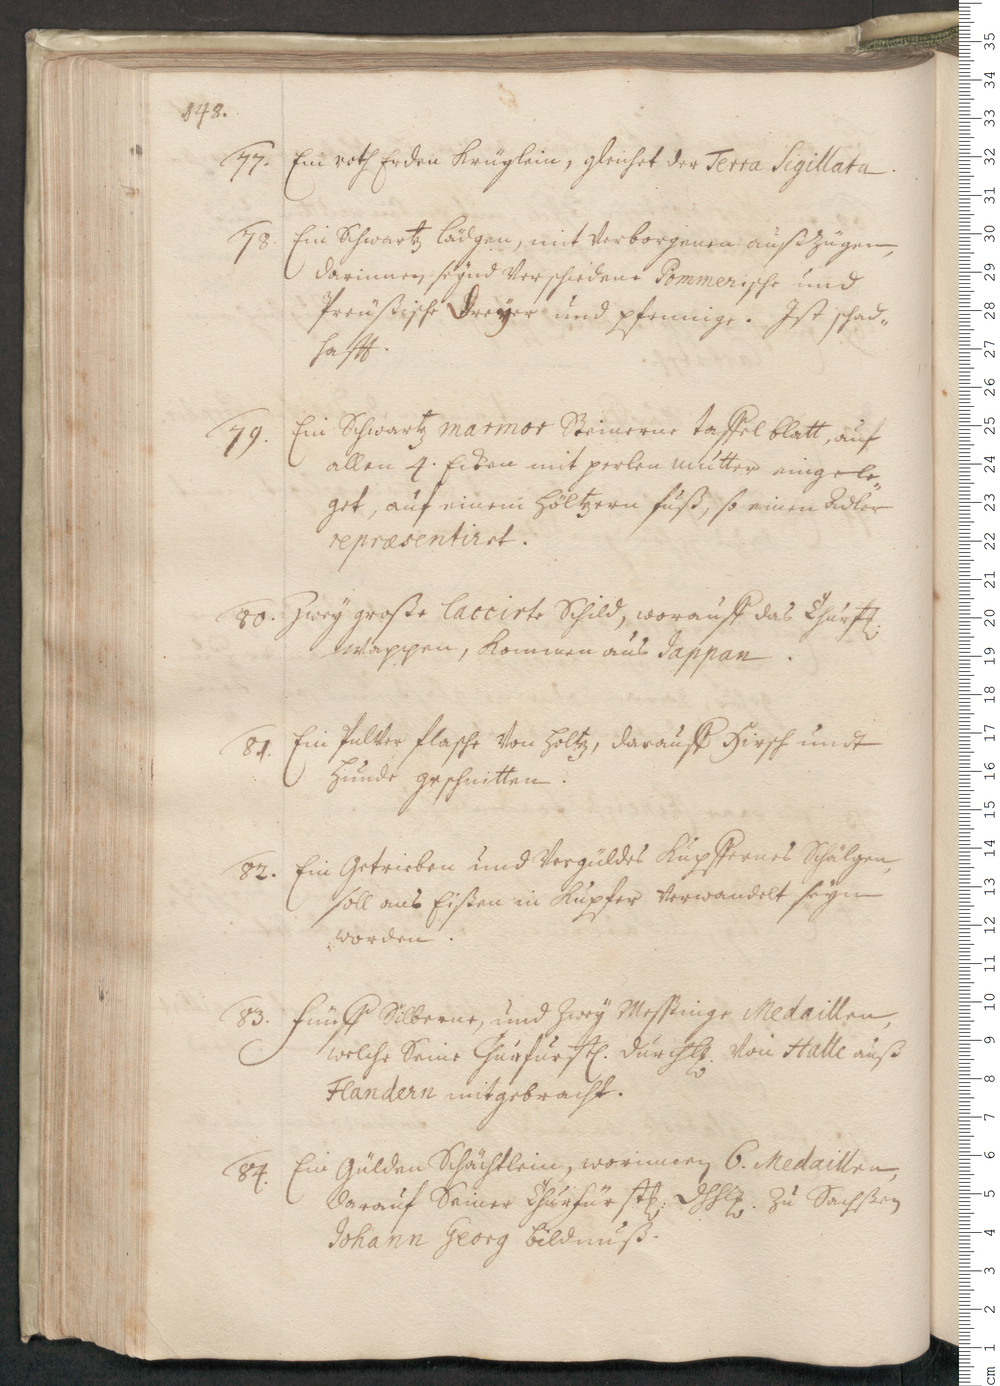 148.
77. Ein roth Erden Krüglein, gleichet der Terra Sigillata.
78. Ein Schwartz lädgen, mit Verborgenen außzügen,
darinnen seynd Verschiedene Pommerische und
Preußische Dreyer und pfennige. Ist schad-
hafft.
79. Ein Schwartz marmor Steinerne taffel blatt, auf
allen 4. Ecken mit perlen mutter eingele-
get, auf einem höltzern fuß, so einen Adler
repræsentiret.
80. Zwey große laccirte Schild, worauff das Churfl.
wappen, Kommen aus Jappan.
81. Ein Pulver flasche Von holtz, darauff Hirsch undt
Hunde geschnitten.
82. Ein Getrieben und Vergüldes Kupffernes Schälgen,
soll aus Eißen in Kupfer Verwandelt seyn
worden.
83. Fünff Silberne, und Zwey Messinge Medaillen,
welche Seine Churfürstl. Durchl. Von Halle auß
Flandern mitgebracht.
84. Ein Gülden Schächtlein, worinnen 6. Medaillen,
darauf Seiner Churfürstl. Zu Sachßen
Johann Georg bildnuß.
35
34
33
32
31
30
29
28
27
26
25
24
23
22
21
20
19
18
17
16
15
14
13
12
11
10
9
8
7
6
5
4
3
2
1
cm